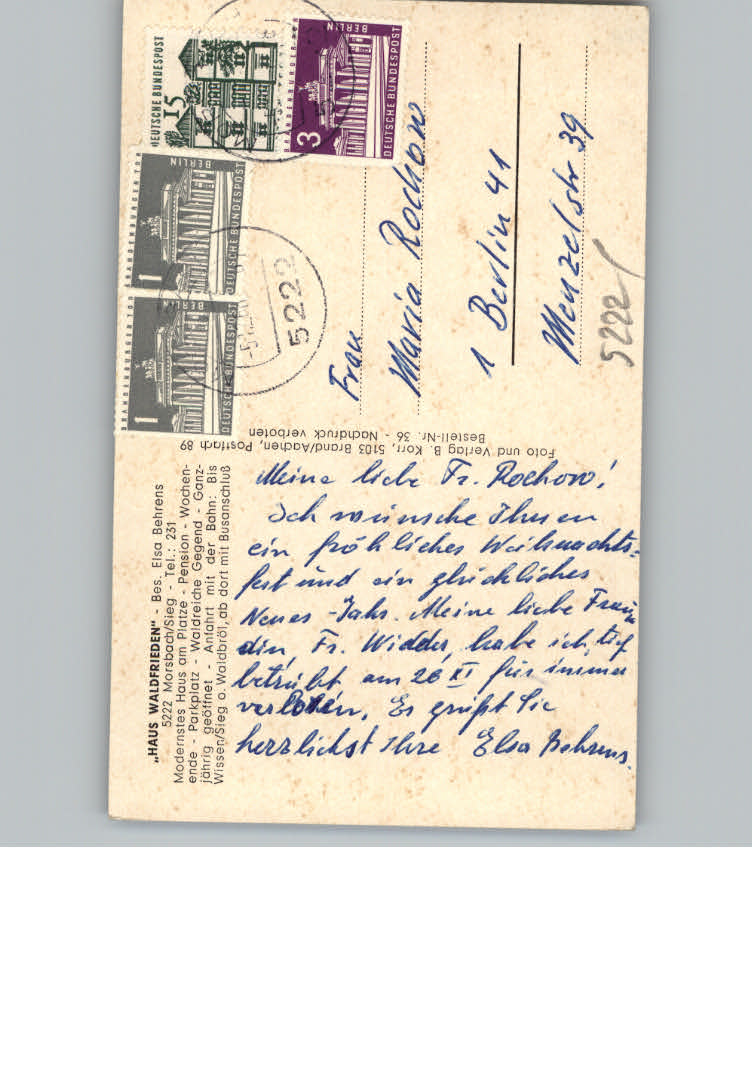 „HAUS WALDFRIEDEN" - Bes. Elsa Behrens
5222 Morsbach/Sieg - Tel.: 231
Modernstes Haus am Platze - Pension - Wochen-
ende - Parkplatz - Waldreiche Gegend - Ganz-
jährig geöffnet - Anfahrt mit der Bahn: Bis
Wissen/Sieg o. Waldbröl, ab dort mit Busanschluß
Meine liebe Fr. Rochow!
Ich wünsche Ihnen
ein fröhliches Weihnachts-
fest und ein glückliches
Neues-Jahr. Meine liebe Freun
din, Fr. Widder, habe ich, tief
betrübt am 26 XI für immer
verloren. Es grüßt Sie
herzlichst Ihre Elsa Behrens.
Foto und Verlag B. Korr, 5103 Brand/Aachen, Postfach 89
Bestell-Nr. 36 - Nachdruck verboten
DEUTSCHE BUNDESPOST
15
BERLIN
BRANDENBURGER TOR
3
DEUTSCHE BUNDESPOST
BERLIN
BRANDENBURGER TOR
1
DEUTSCHE BUNDESPOST
BERLIN
BRANDENBURGER TOR
1
DEUTSCHE BUNDESPOST
5222
Frau
Maria Rochow
1 Berlin 41
Menzelstr 39
5222